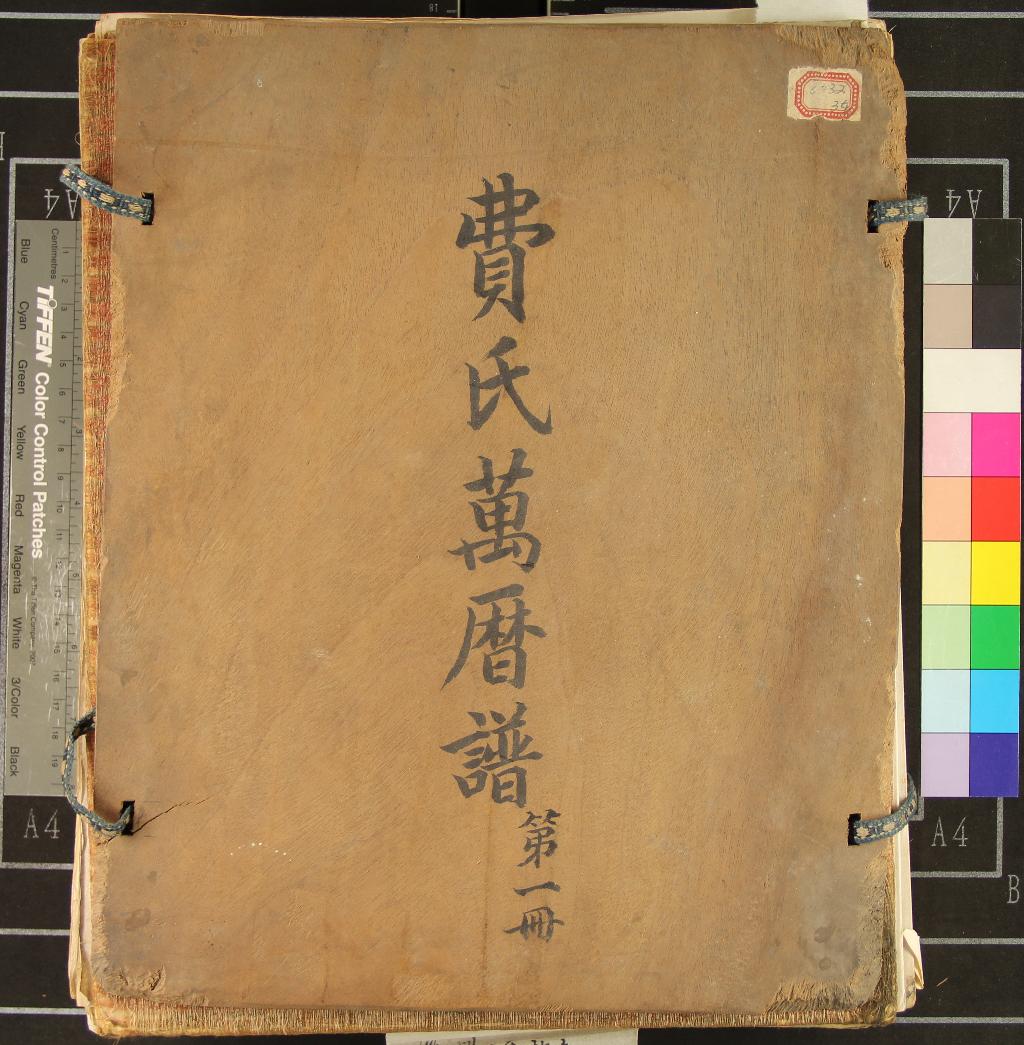 費氏萬暦譜
第一冊
A4
A4
A4
A4
B
Centimetres
1 2 3 4 5 6 7 8 9 10 11 12 13 14 15 16 17 18 19
TIFFEN Color Control Patches
© The Tiffen Company, 2007
Blue Cyan Green Yellow Red Magenta White 3/Color Black